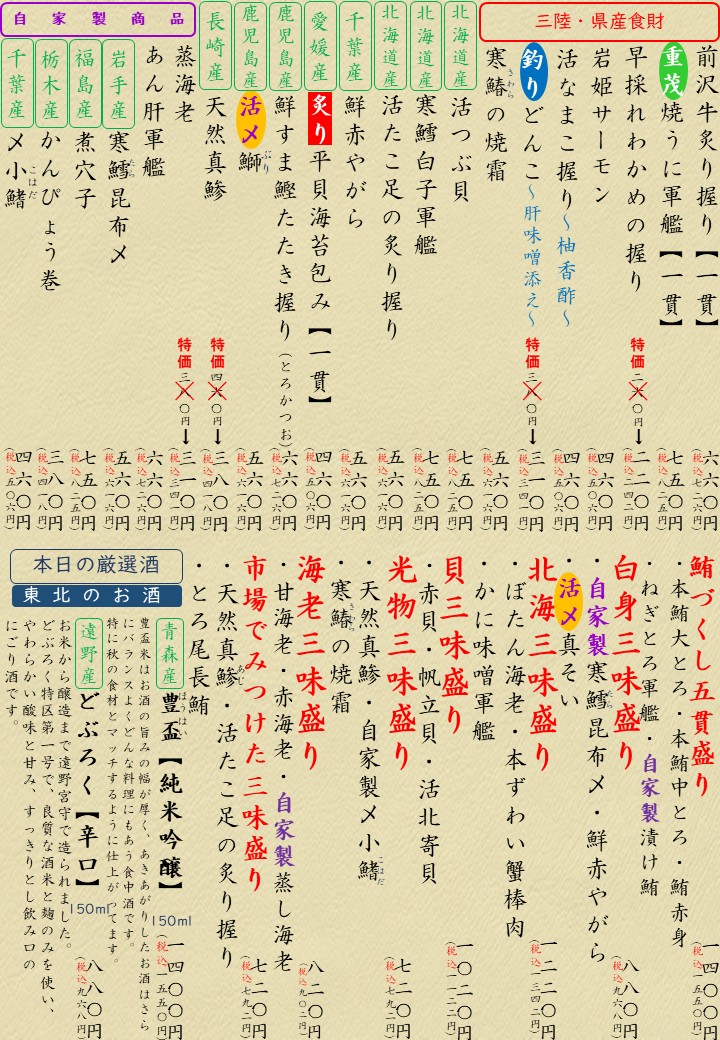 三陸・県産食財
前沢牛炙り握り【一貫】
六六〇円
(税込七二六円)
重茂焼うに軍艦【一貫】
七五〇円
(税込八二五円)
早採れわかめの握り
特価
二六〇円
↓
二二〇円
(税込二四二円)
岩姫サーモン
四六〇円
(税込五〇六円)
活なまこ握り～柚香酢～
四六〇円
(税込五〇六円)
釣りどんこ～肝味噌添え～
特価
三八〇円
↓
三一〇円
(税込三四一円)
寒鰆の焼霜
さわら
五六〇円
(税込六一六円)
北海道産
活つぶ貝
七五〇円
(税込八二五円)
北海道産
寒鱈白子軍艦
七五〇円
(税込八二五円)
北海道産
活たこ足の炙り握り
五六〇円
(税込六一六円)
千葉産
鮮赤やがら
五六〇円
(税込六一六円)
愛媛産
炙り平貝海苔包み【一貫】
四六〇円
(税込五〇六円)
鹿児島産
鮮すま鰹たたき握り(とろかつお)
六六〇円
(税込七二六円)
鹿児島産
活〆鰤
ぶり
五六〇円
(税込六一六円)
長崎産
天然真鯵
特価
四六〇円
↓
三八〇円
(税込四一八円)
自家製商品
蒸海老
特価
三八〇円
↓
三一〇円
(税込三四一円)
あん肝軍艦
六六〇円
(税込七二六円)
岩手産
寒鱈昆布〆
たら
五六〇円
(税込六一六円)
福島産
煮穴子
七五〇円
(税込八二五円)
栃木産
かんぴょう巻
三八〇円
(税込四一八円)
千葉産
〆小鰭
こはだ
四六〇円
(税込五〇六円)
鮪づくし五貫盛り
・本鮪大とろ・本鮪中とろ・鮪赤身
・ねぎとろ軍艦・自家製漬け鮪
一四一〇円
(税込一五五一円)
白身三味盛り
・自家製寒鱈昆布〆・鮮赤やがら
たら
・活〆真そい
八八〇円
(税込九六八円)
北海三味盛り
・ぼたん海老・本ずわい蟹棒肉
・かに味噌軍艦
一二二〇円
(税込一三四二円)
貝三味盛り
・赤貝・帆立貝・活北寄貝
一〇二〇円
(税込一一二二円)
光物三味盛り
・天然真鯵・自家製〆小鰭
こはだ
・寒鰆の焼霜
さわら
七二〇円
(税込七九二円)
海老三味盛り
・甘海老・赤海老・自家製蒸し海老
八二〇円
(税込九〇二円)
市場でみつけた三味盛り
・天然真鯵・活たこ足の炙り握り
あじ
・とろ尾長鮪
七二〇円
(税込七九二円)
本日の厳選酒
東北のお酒
青森産
豊盃【純米吟醸】
ほうはい
150ml
一四〇〇円
(税込一五四〇円)
豊盃米はお酒の旨みの幅が厚く、あきあがりしたお酒はさら
にバランスよくどんな料理にもあう食中酒です。
特に秋の食材とマッチするように仕上がってます。
遠野産
どぶろく【辛口】
150ml
八八〇円
(税込九六八円)
お米から醸造まで遠野宮守で造られました。
どぶろく特区第一号で、良質な酒米と麹のみを使い、
やわらかい酸味と甘み、すっきりとし飲み口の
にごり酒です。